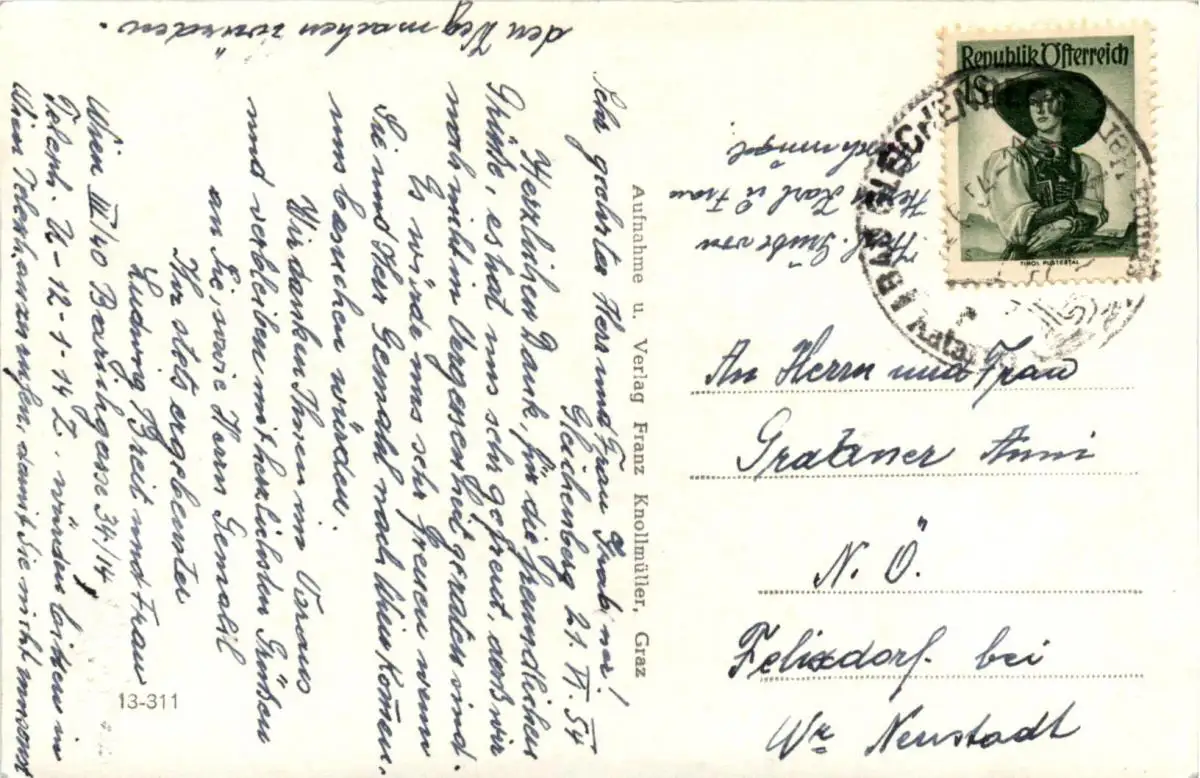 Gleichenberg 21. VI. 54
Sehr geehrter Herr und Frau Grabner!
Herzlichen Dank, für die freundlichen
Grüße, es hat uns sehr gefreut, daß wir
noch nicht in Vergessenheit geraten sind.
Es würde uns sehr freuen wenn
Sie und Herr Gemahl nach Wien kom̄en,
uns besuchen würden.
Wir danken Ihnen im Voraus
und verbleiben mit herzlichsten Grüßen
an Sie sowie Herrn Gemahl
Ihr stets ergebenster
Ludwig Breit und Frau
Wien III/40 Barichgasse 34/14
Teleph. U-12-1-14 Z. würden bitten in
Wien Telef. anzurufen, damit Sie nicht umsonst
den Weg machen würden.
Herzl. Grüße von
Herr Karl u Frau
Aufnahme u. Verlag Franz Knollmüller, Graz
13-311
Republik Österreich
1S
TIROL PUSTERTAL
BAD GLEICHENBERG
An Herrn und Frau
Grabner Anni
N. Ö.
Felixdorf. bei
Wr Neustadt